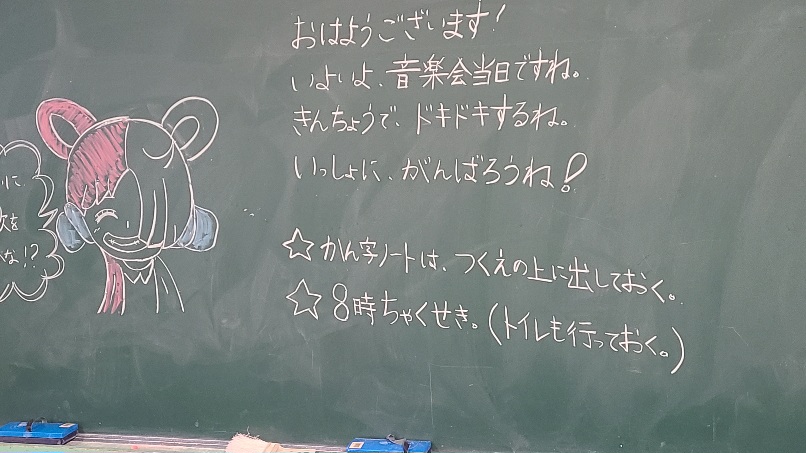 おはようございます!
いよいよ、音楽会当日ですね。
きんちょうで、ドキドキするね。
いっしょに、がんばろうね!
☆かん字ノートは、つくえの上に出しておく。
☆8時ちゃくせき。(トイレも行っておく。)
に、
を
な!?